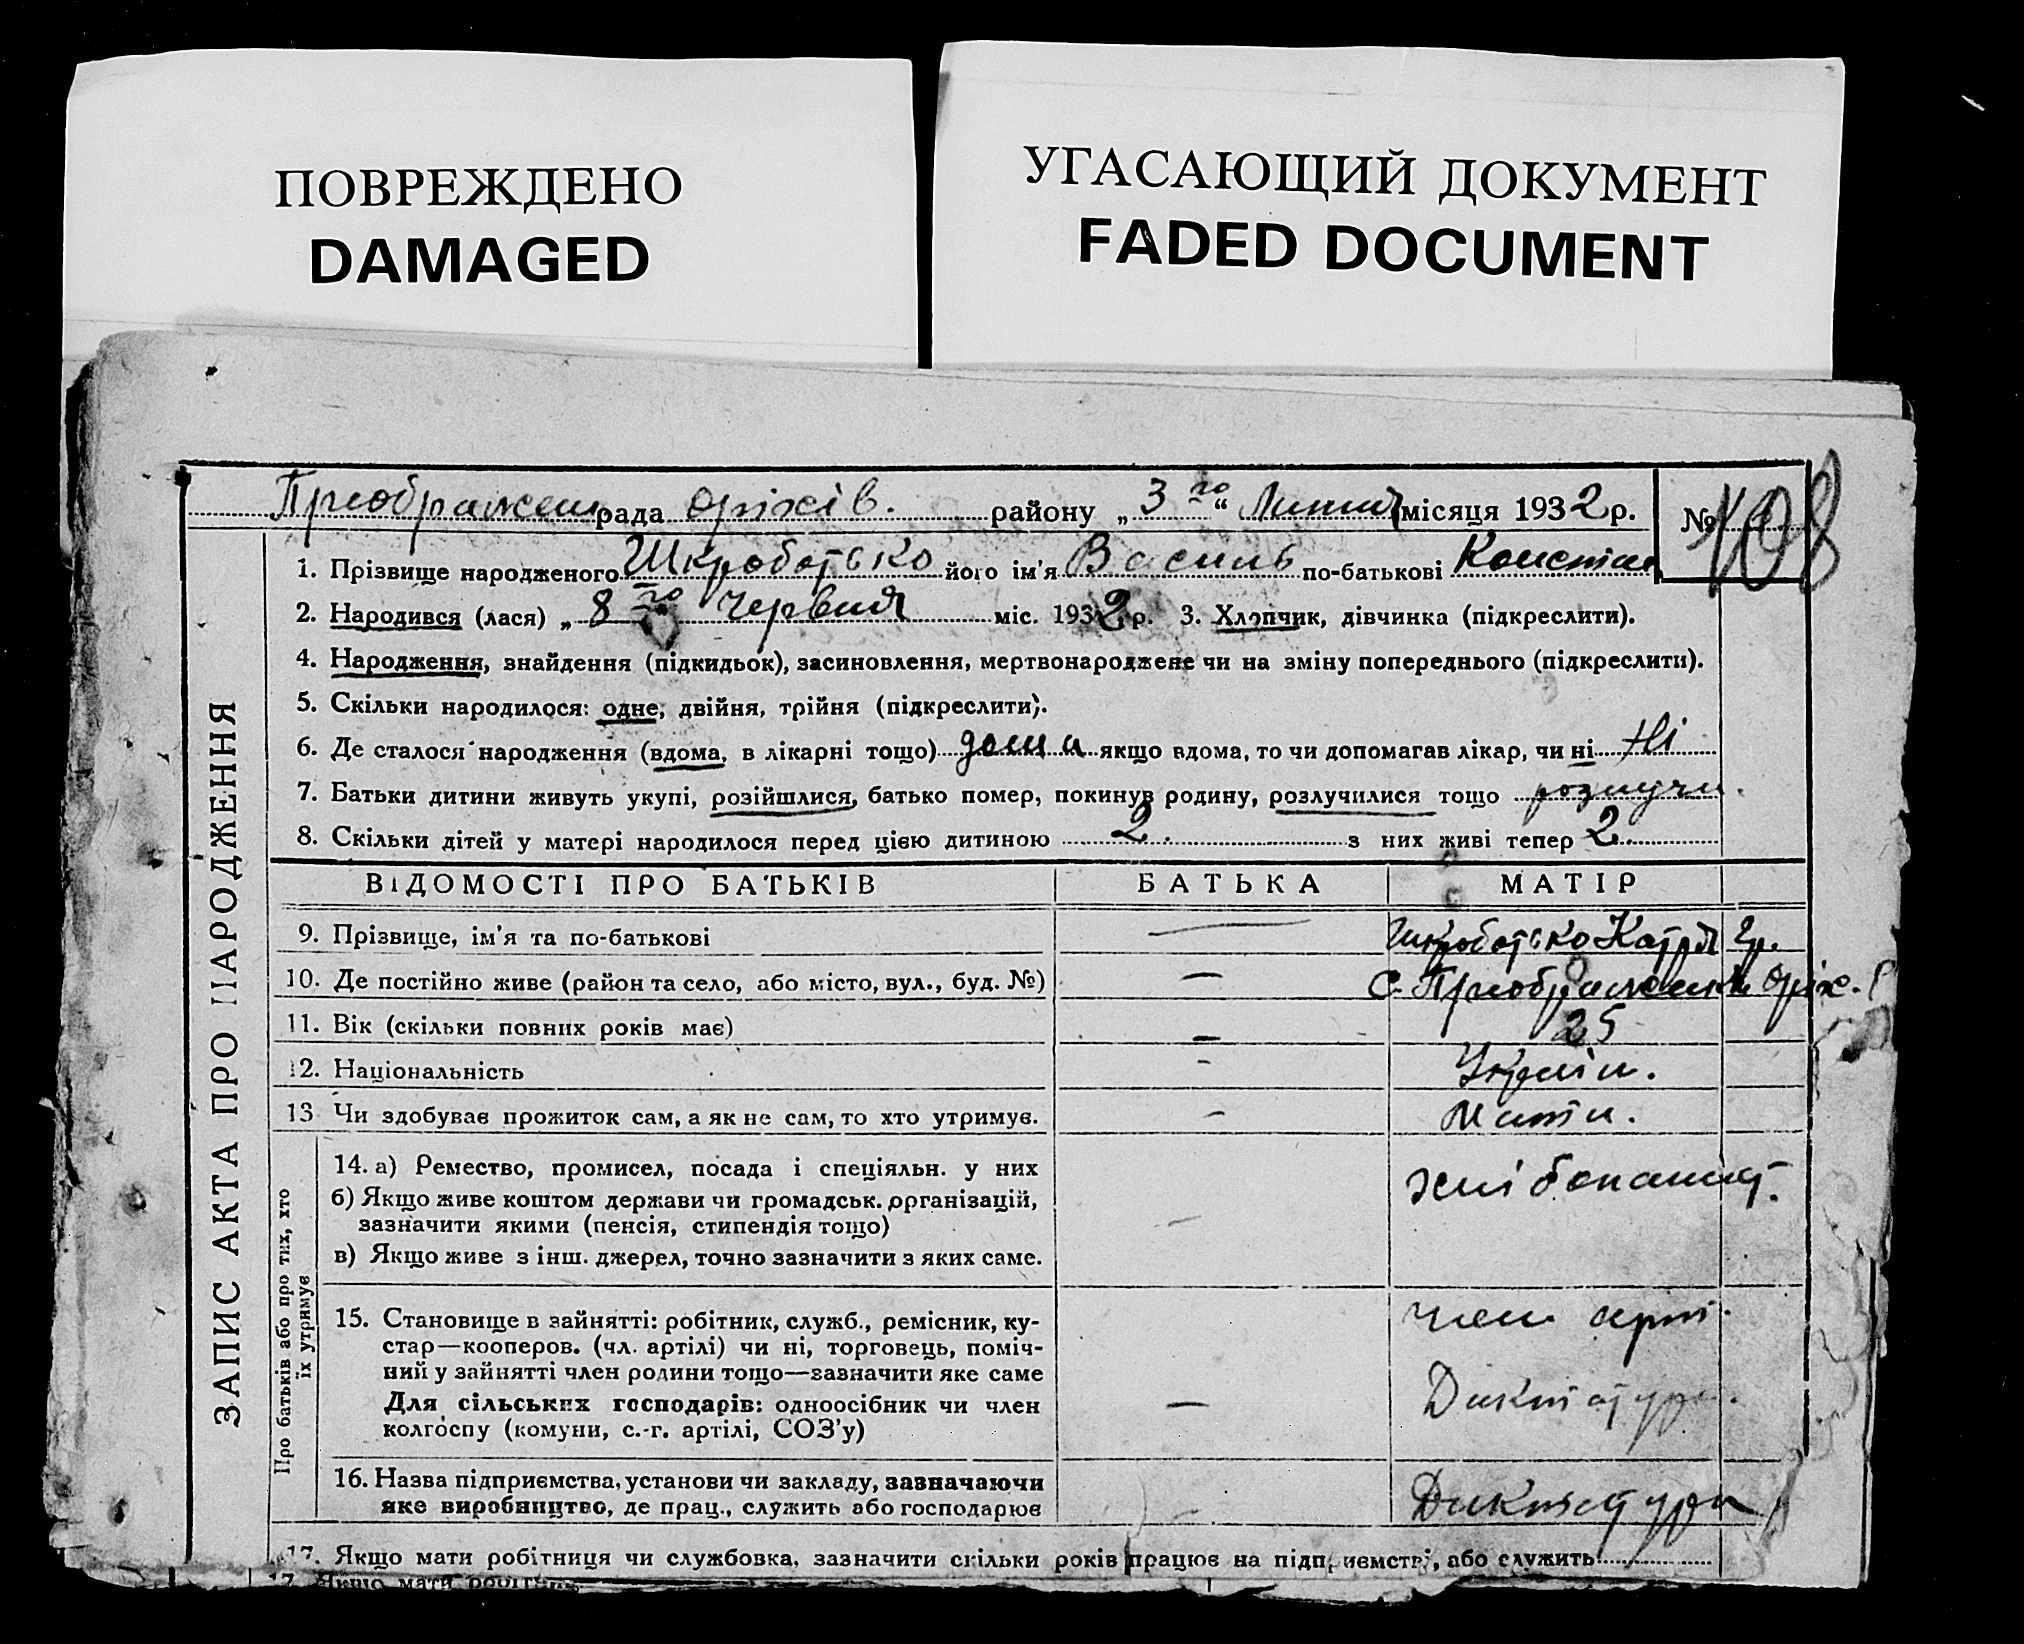 ПОВРЕЖДЕНО
DAMAGED
УГАСАЮЩИЙ ДОКУМЕНТ
FADED DOCUMENT
Преображен рада Оріхів. району „3го“ Липня місяця 1932 р. № 108
ЗАПИС АКТА ПРО НАРОДЖЕННЯ
1. Прізвище народженого Шкроботько його ім'я Василь по-батькові Констан
2. Народився (лася) „8го“ червня міс. 1932 р. 3. Хлопчик, дівчинка (підкреслити).
4. Народження, знайдення (підкидьок), засиновлення, мертвонароджене чи на зміну попереднього (підкреслити).
5. Скільки народилося: одне, двійня, трійня (підкреслити).
6. Де сталося народження (вдома, в лікарні тощо) дома якщо вдома, то чи допомагав лікар, чи ні Ні
7. Батьки дитини живуть укупі, розійшлися, батько помер, покинув родину, розлучилися тощо розлучи.
8. Скільки дітей у матері народилося перед цією дитиною 2. з них живі тепер 2.
ВІДОМОСТІ ПРО БАТЬКІВ БАТЬКА МАТІР
9. Прізвище, ім'я та по-батькові — Шкроботько Катря Гр.
10. Де постійно живе (район та село, або місто, вул., буд. №) — с. Преображенка Оріх. р
11. Вік (скільки повних років має) — 25
12. Національність - Україн.
13 Чи здобуває прожиток сам, а як не сам, то хто утримує. - Мати.
Про батьків або про тих, хто їх утримує
14. а) Ремество, промисел, посада і спеціяльн. у них хліборобст.
б) Якщо живе коштом держави чи громадськ. організацій, —
зазначити якими (пенсія, стипендія тощо)
в) Якщо живе з інш. джерел, точно зазначити з яких саме.
15. Становище в зайнятті: робітник, служб., ремісник, ку- член арт.
стар—кооперов. (чл. артілі) чи ні, торговець, поміч-
ний у зайнятті член родини тощо—зазначити яке саме Диктатура.
Для сільських господарів: одноосібник чи член —
колгоспу (комуни, с.-г. артілі, СОЗ'у)
16. Назва підприємства, установи чи закладу, зазначаючи Диктатура
яке виробництво, де прац., служить або господарює —
17. Якщо мати робітниця чи службовка, зазначити скільки років працює на підприємстві, або служить
17. Якщо мати робітниц